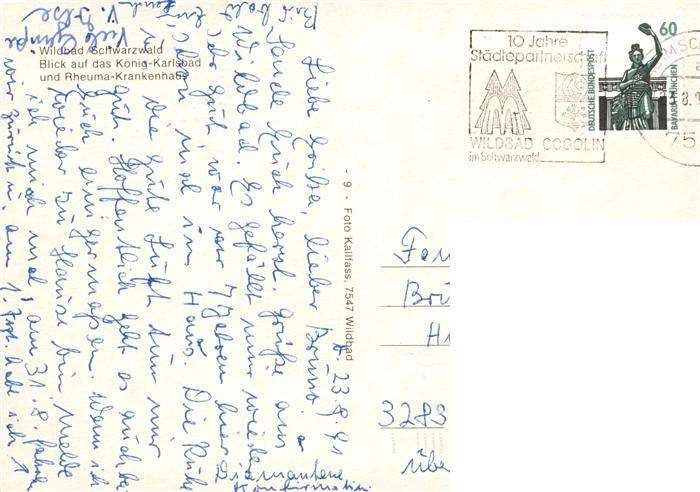 Wildbad/Schwarzwald
Blick auf das König-Karlsbad
und Rheuma-Krankenhaus
- 9 - Foto Kallfass, 7547 Wildbad
10 Jahre
Städtepartnerschaft
WILDBAD COGOLIN
im Schwarzwald
60
DEUTSCHE BUNDESPOST
BAVARIA MÜNCHEN
75
23.8.91
Liebe lieber Bruno.
Sende Euch herzl. Grüße aus
Wildbad. Es gefällt mir wieder
sehr gut war vor Jahren hier
schon mal im Haus. Die Ruhe
die gute Luft tun mir
gut. Hoffentlich geht es auch bei
Euch einigermaßen. Wenn ich
wieder zu Hause bin melde
ich mich mal, am 31.8. fahren
wir zurück, am 1. habe ich
Diamantene
Konfirmation
Viele Grüße
3283